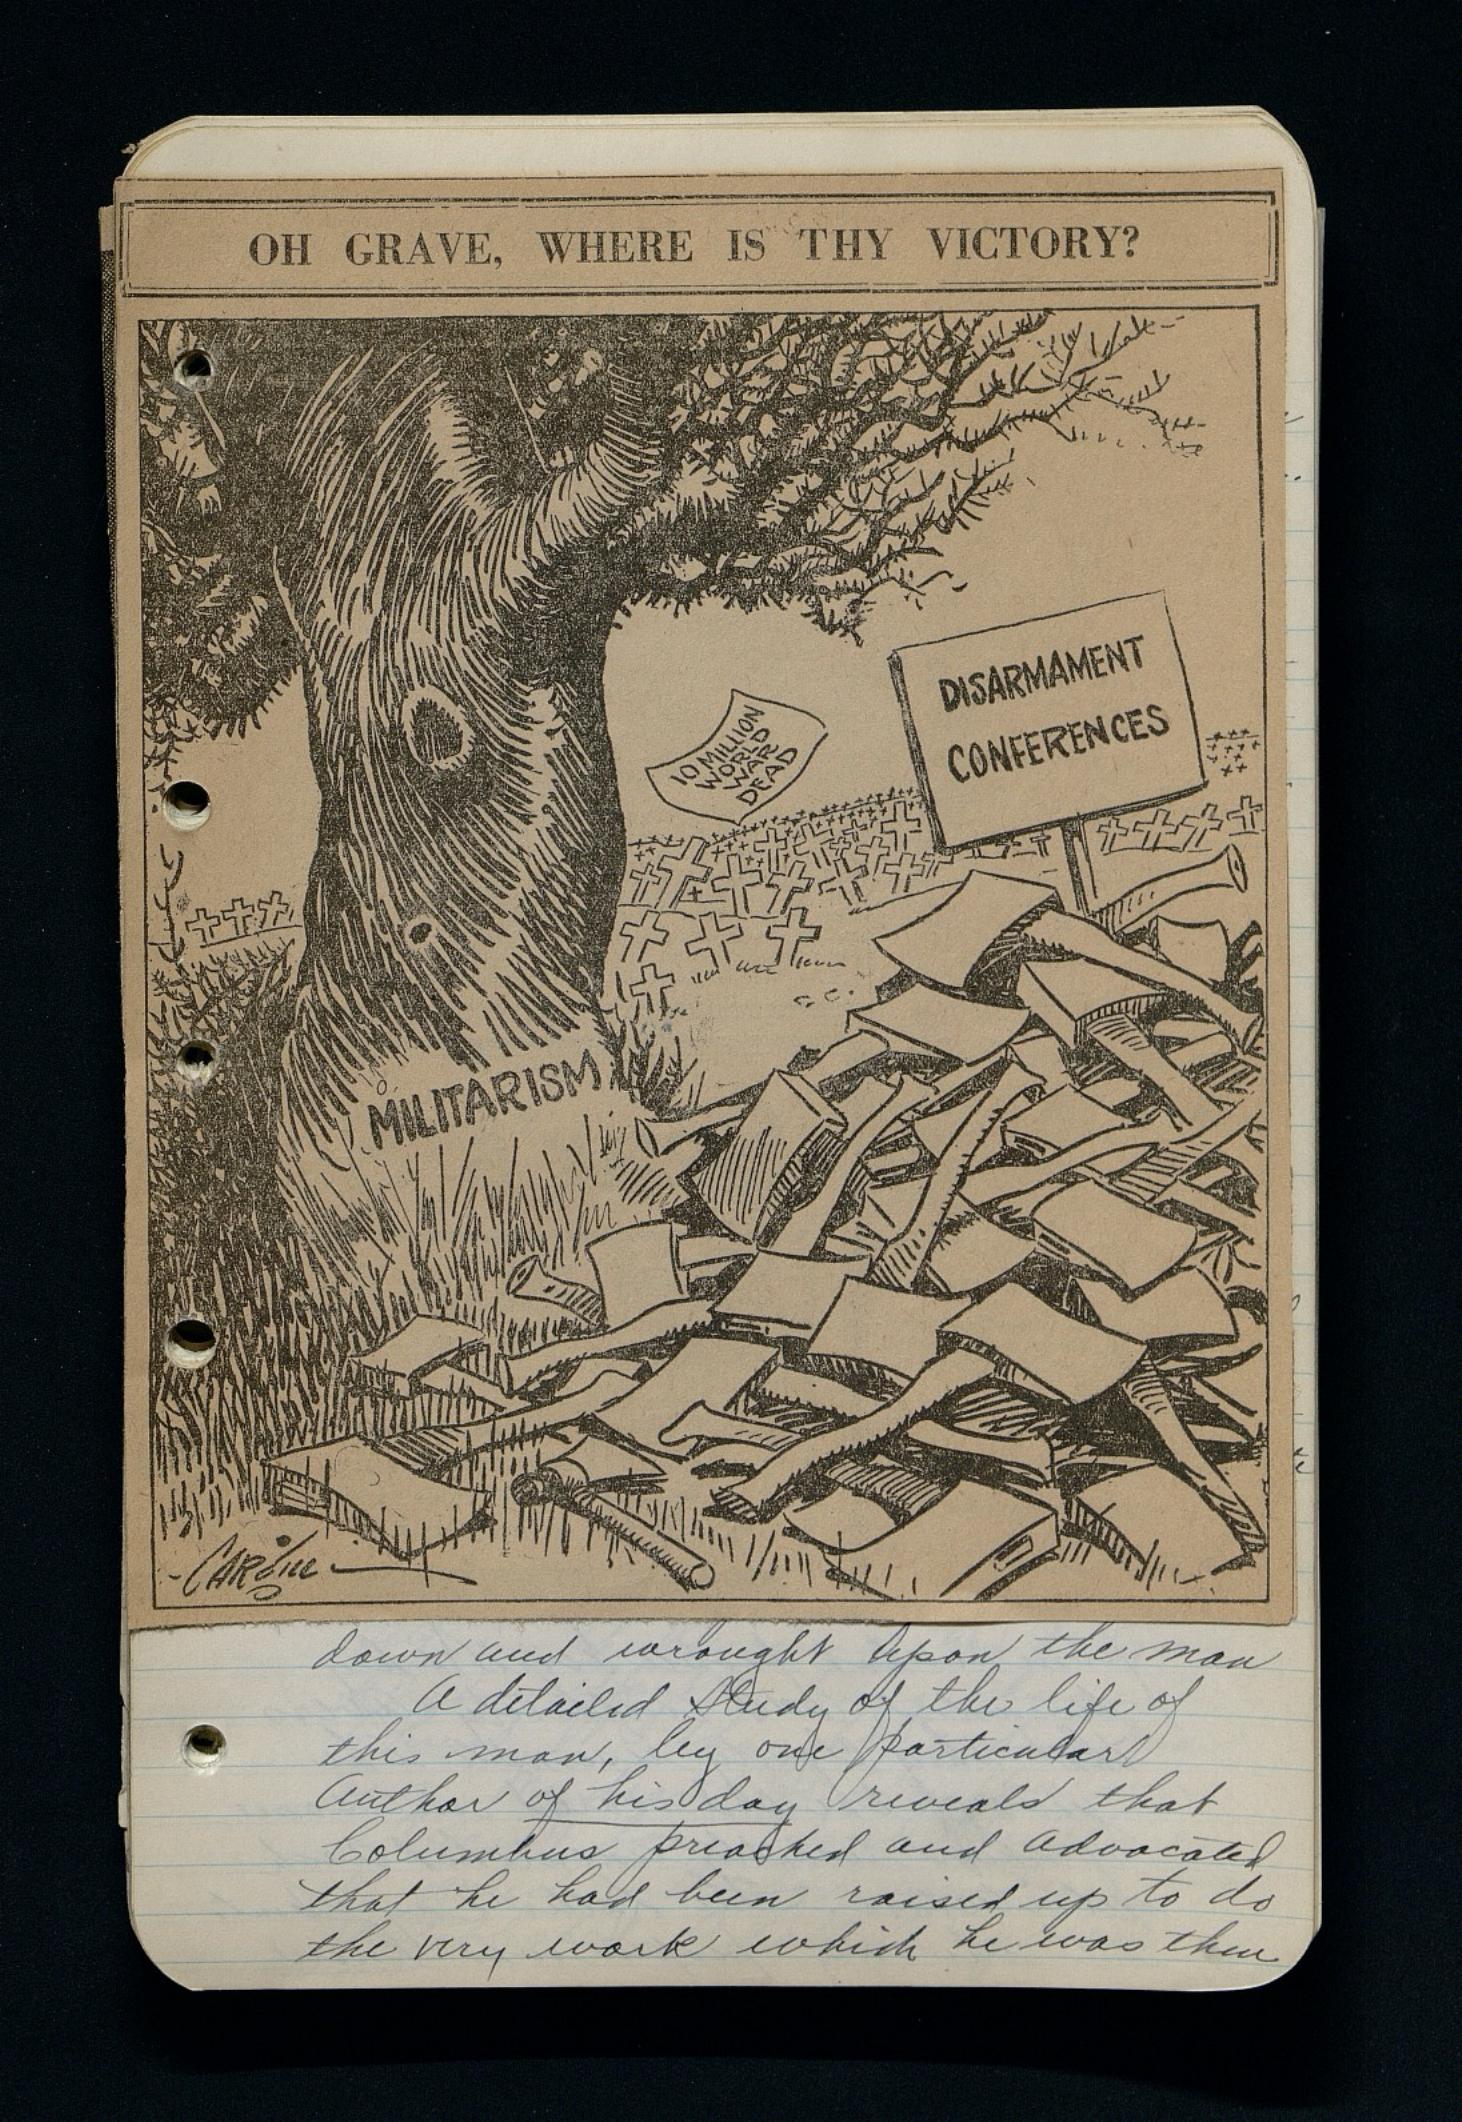 OH GRAVE, WHERE IS THY VICTORY?
10 MILLION
WORLD
WAR
DEAD
DISARMAMENT
CONFERENCES
MILITARISM
down and wrought upon the man
A detailed study of the life of
this man, by one particular
Author of his day reveals that
Columbus preached and advocated
that he had been raised up to do
the very work which he was then